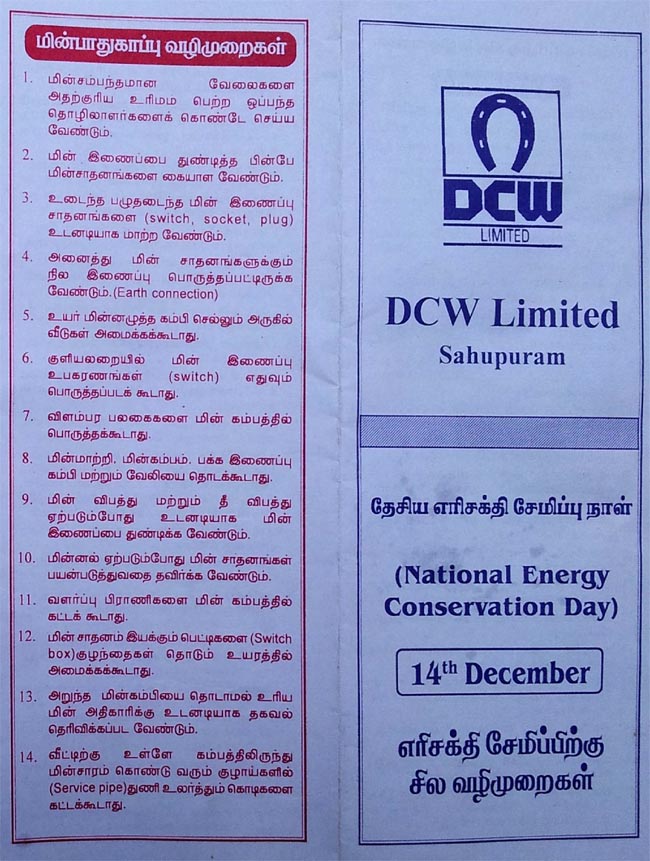 மின்பாதுகாப்பு வழிமுறைகள்
1. மின்சம்பந்தமான வேலைகளை
அதற்குரிய உரிமம் பெற்ற ஒப்பந்த
தொழிலாளர்களைக் கொண்டே செய்ய
வேண்டும்.
2. மின் இணைப்பை துண்டித்த பின்பே
மின்சாதனங்களை கையாள வேண்டும்.
3. உடைந்த பழுதடைந்த மின் இணைப்பு
சாதனங்களை (switch, socket, plug)
உடனடியாக மாற்ற வேண்டும்.
4. அனைத்து மின் சாதனங்களுக்கும்
நில இணைப்பு பொருத்தப்பட்டிருக்க
வேண்டும்.(Earth connection)
5. உயர் மின்னழுத்த கம்பி செல்லும் அருகில்
வீடுகள் அமைக்கக்கூடாது.
6. குளியலறையில் மின் இணைப்பு
உபகரணங்கள் (switch) எதுவும்
பொருத்தப்படக் கூடாது.
7. விளம்பர பலகைகளை மின் கம்பத்தில்
பொருத்தக்கூடாது.
8. மின்மாற்றி. மின்கம்பம். பக்க இணைப்பு
கம்பி மற்றும் வேலியை தொடக்கூடாது.
9. மின் விபத்து மற்றும் தீ விபத்து
ஏற்படும்போது உடனடியாக மின்
இணைப்பை துண்டிக்க வேண்டும்.
10. மின்னல் ஏற்படும்போது மின் சாதனங்கள்
பயன்படுத்துவதை தவிர்க்க வேண்டும்.
11. வளர்ப்பு பிராணிகளை மின் கம்பத்தில்
கட்டக் கூடாது.
12. மின் சாதனம் இயக்கும் பெட்டிகளை (Switch
box)குழந்தைகள் தொடும் உயரத்தில்
அமைக்கக்கூடாது.
13. அறுந்த மின்கம்பியை தொடாமல் உரிய
மின் அதிகாரிக்கு உடனடியாக தகவல்
தெரிவிக்கப்பட வேண்டும்.
14. வீட்டிற்கு உள்ளே கம்பத்திலிருந்து
மின்சாரம் கொண்டு வரும் குழாய்களில்
(Service pipe)துணி உலர்த்தும் கொடிகளை
கட்டக்கூடாது.
DCW
LIMITED
DCW Limited
Sahupuram
தேசிய எரிசக்தி சேமிப்பு நாள்
(National Energy
Conservation Day)
14th December
எரிசக்தி சேமிப்பிற்கு
சில வழிமுறைகள்